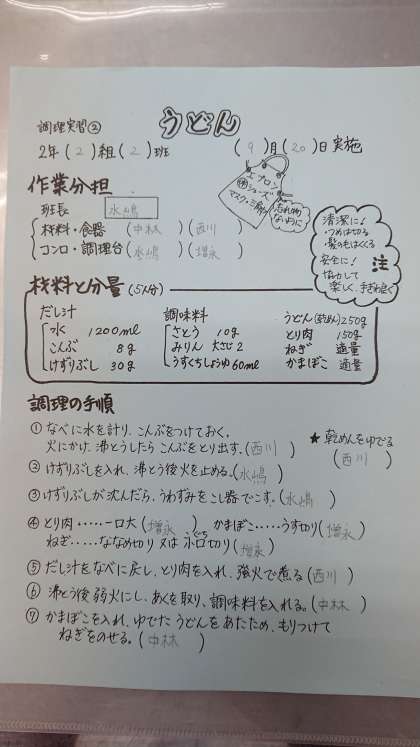 調理実習② うどん
2年(2)組(2)班 (9)月(20)日実施
エプロン
シューズ
マスク・三角巾
忘れ物
ないように
作業分担
班長 水嶋
材料・食器 (中林)(西川)
コンロ・調理台 (水嶋)(増永)
清潔に!
・つめは切る
・髪の毛はくくる
安全に!
なかよくして
楽しく、手ぎわよく
注
材料と分量(5人分)
だし汁
水 1200ml
こんぶ 8g
けずりぶし 30g
調味料
さとう 10g
みりん 大さじ2
うすくちしょうゆ 60ml
うどん(乾めん)250g
とり肉 150g
ねぎ 適量
かまぼこ 適量
調理の手順
① なべに水を計り、こんぶをつけておく。
火にかけ、沸とうしたらこんぶをとり出す。(西川)
★乾めんをゆでる
(西川)
② けずりぶしを入れ、沸とう後火を止める。(水嶋)
③ けずりぶしが沈んだら、うわずみをこし器でこす。(水嶋)
④ とり肉……一口大(増永) かまぼこ……うす切り(増永)
ねぎ……ななめ切り又は小口切り(増永)
⑤ だし汁をなべに戻し、とり肉を入れ、強火で煮る(西川)
⑥ 沸とう後弱火にし、あくを取り、調味料を入れる。(中林)
⑦ かまぼこを入れ、ゆでたうどんをあたため、もりつけて
ねぎをのせる。(中林)